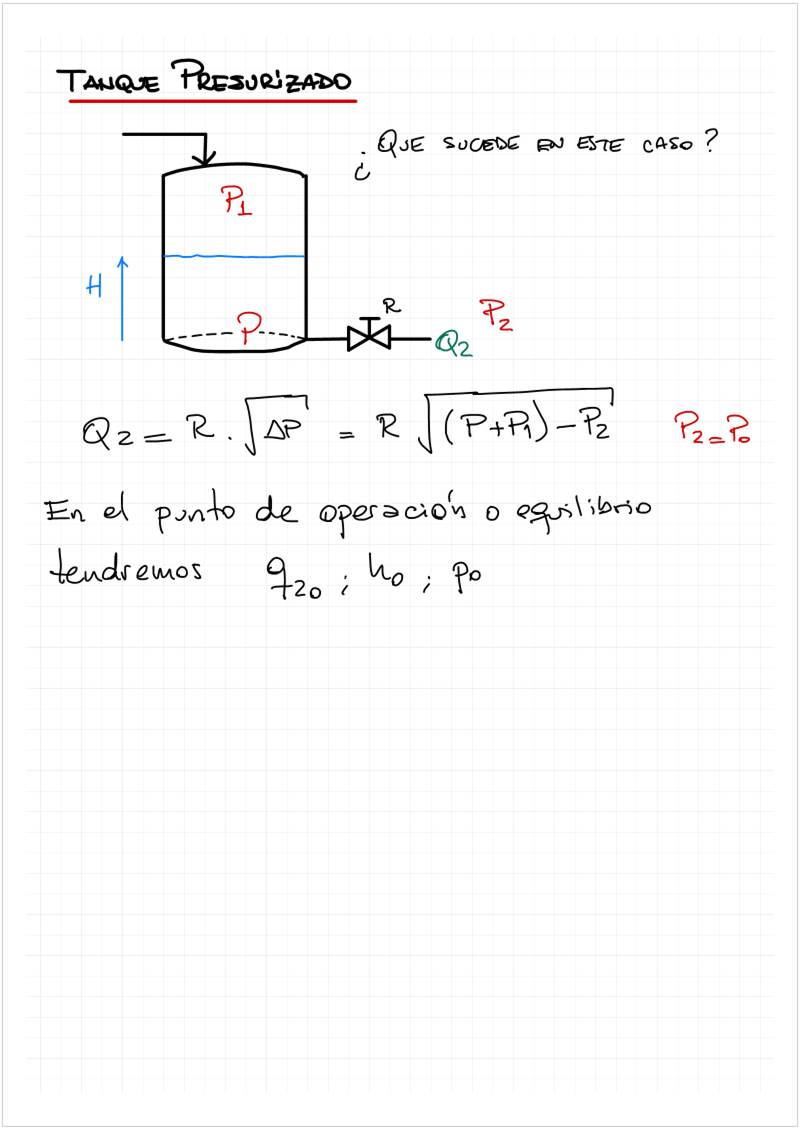 TANQUE PRESURIZADO
¿QUE SUCEDE EN ESTE CASO?
P₁
H
P
R
P₂
Q₂
Q₂ = R . √ΔP = R √(P+P₁)-P₂ P₂=P₀
En el punto de operación o equilibrio
tendremos q₂₀ ; h₀ ; p₀